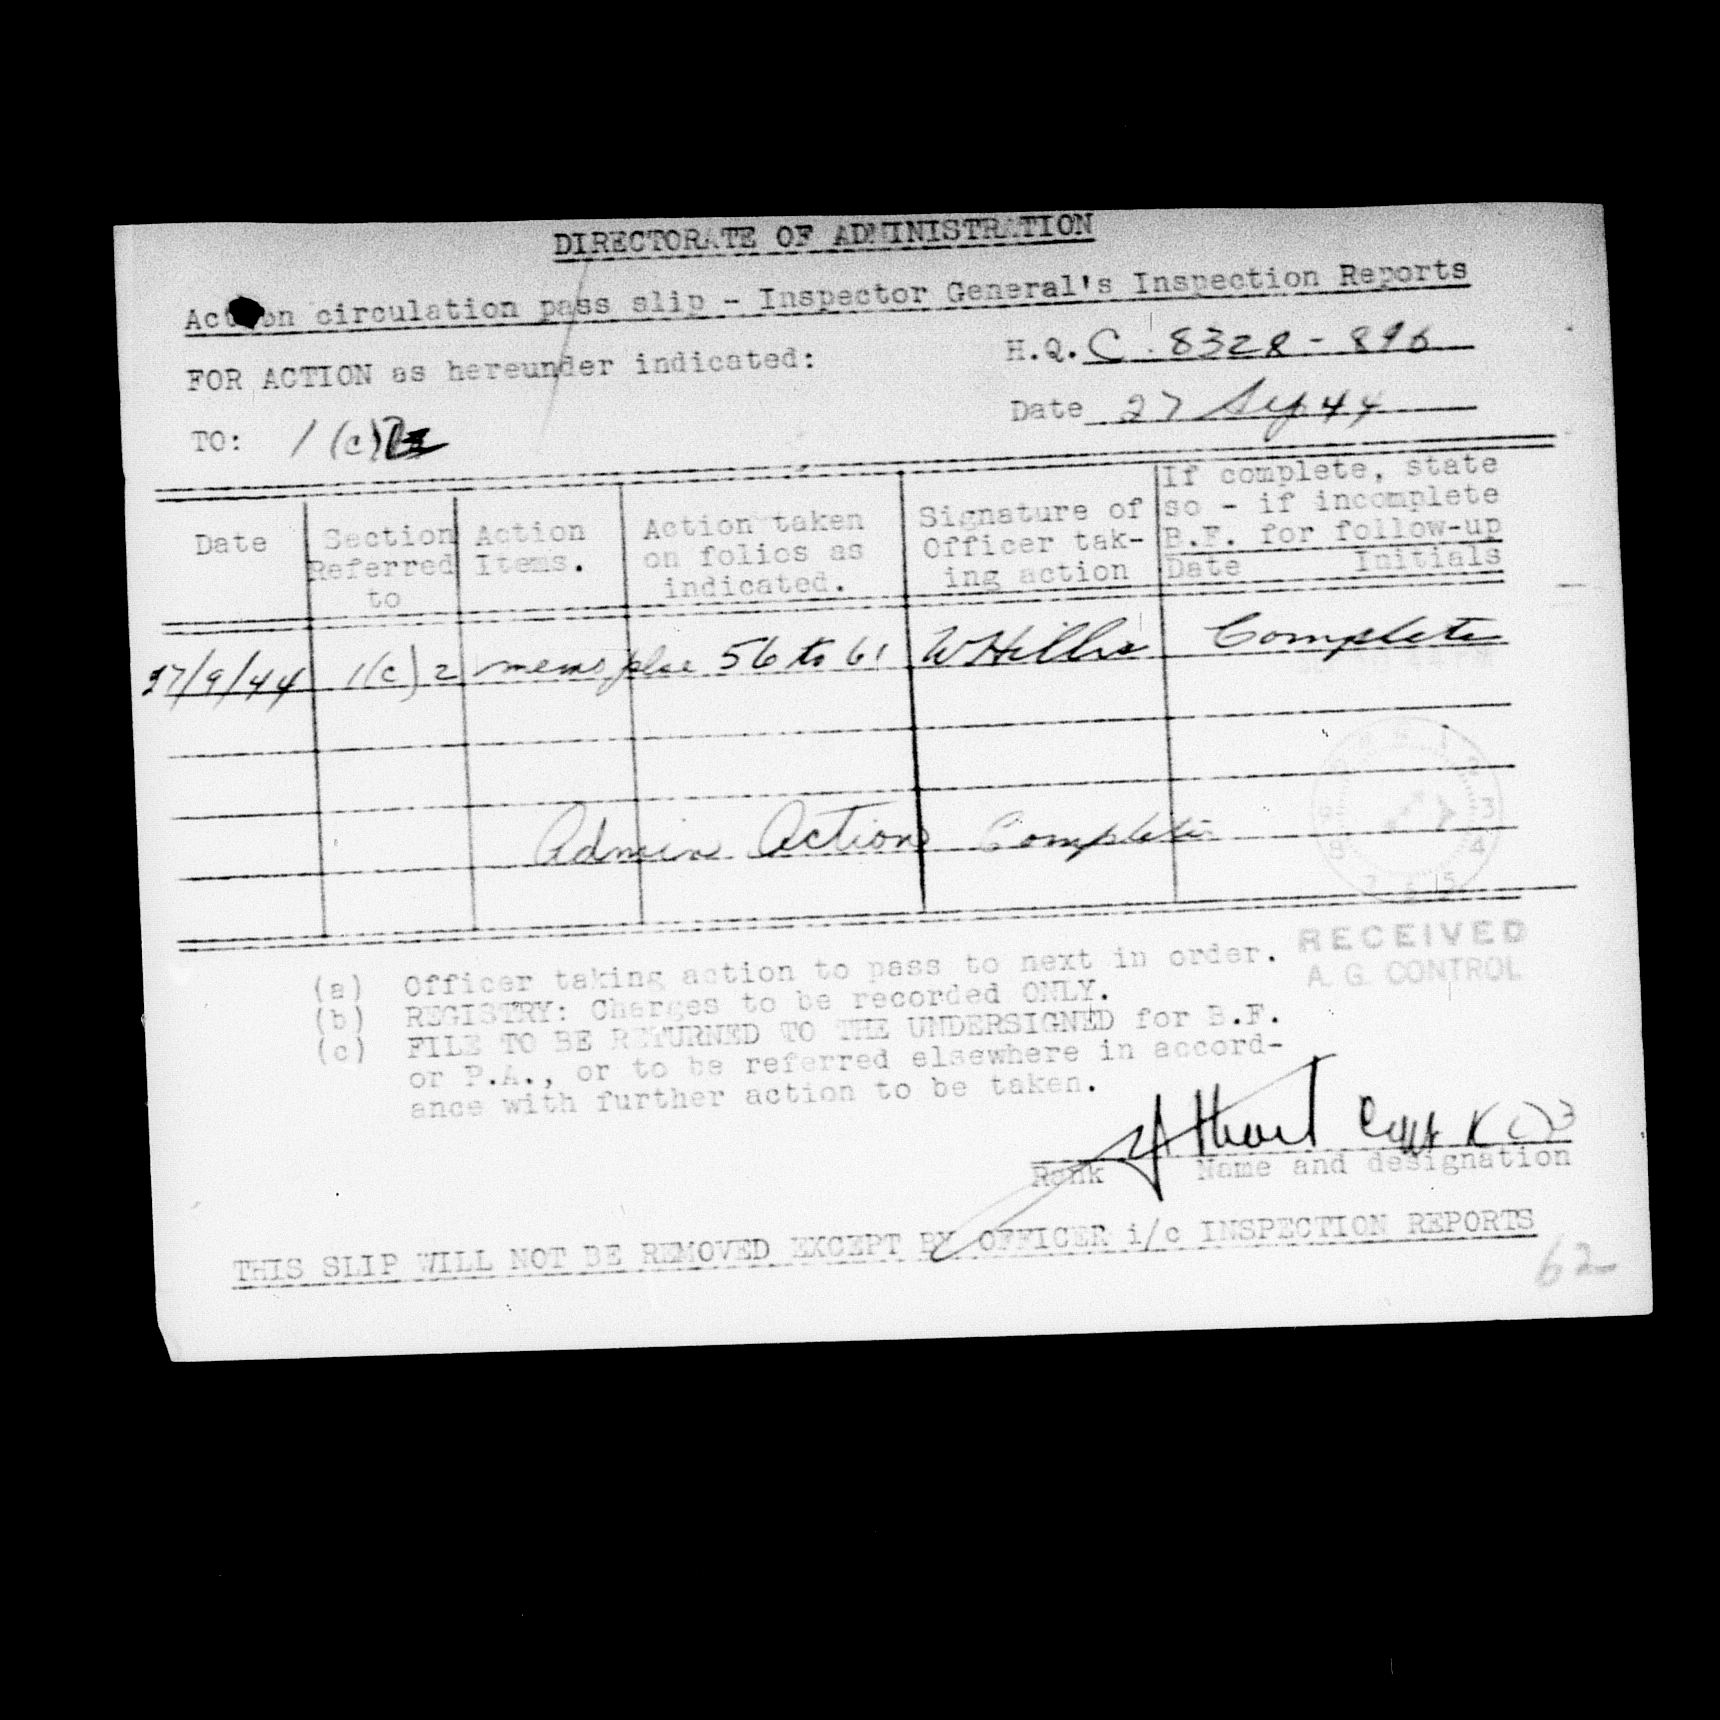 DIRECTORATE OF ADMINISTRATION
Action circulation pass slip - Inspector General's Inspection Reports
FOR ACTION as hereunder indicated:
H.Q. C. 8328 - 896
Date 27 Sep 44
TO: 1 (c)
Date
Section Referred to
Action Items.
Action taken on folios as indicated.
Signature of Officer tak-ing action
If complete, state so - if incomplete B.F. for follow-up
Date Initials
27/9/44 1(c) 2 memo 56 to 61 Complete
Admin Action Complete
RECEIVED
A. G. CONTROL
(a) Officer taking action to pass to next in order.
(b) REGISTRY: Charges to be recorded ONLY.
(c) FILE TO BE RETURNED TO THE UNDERSIGNED for B.F.
or P.A., or to be referred elsewhere in accord-
ance with further action to be taken.
Rank Name and designation
THIS SLIP WILL NOT BE REMOVED EXCEPT BY OFFICER i/c INSPECTION REPORTS
62